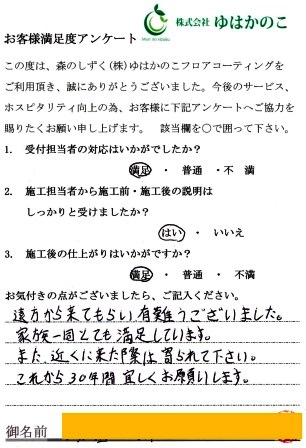 株式会社 ゆはかのこ
お客様満足度アンケート
この度は、森のしずく(株)ゆはかのこフロアコーティングを
ご利用頂き、誠にありがとうございました。今後のサービス、
ホスピタリティ向上の為、お客様に下記アンケートへご協力を
賜りたくお願い申し上げます。 該当欄を○で囲って下さい。
1. 受付担当者の対応はいかがでしたか?
満足 ・ 普通 ・ 不 満
2. 施工担当者から施工前・施工後の説明は
しっかりと受けましたか?
はい ・ いいえ
3. 施工後の仕上がりはいかがですか?
満足 ・ 普通 ・ 不満
お気付きの点がございましたら、ご記入ください。
遠方から来てもらい有難うございました。
家族一同とても満足しています。
また、近くに来た際は寄られて下さい。
これから30年間宜しくお願いします。
御名前